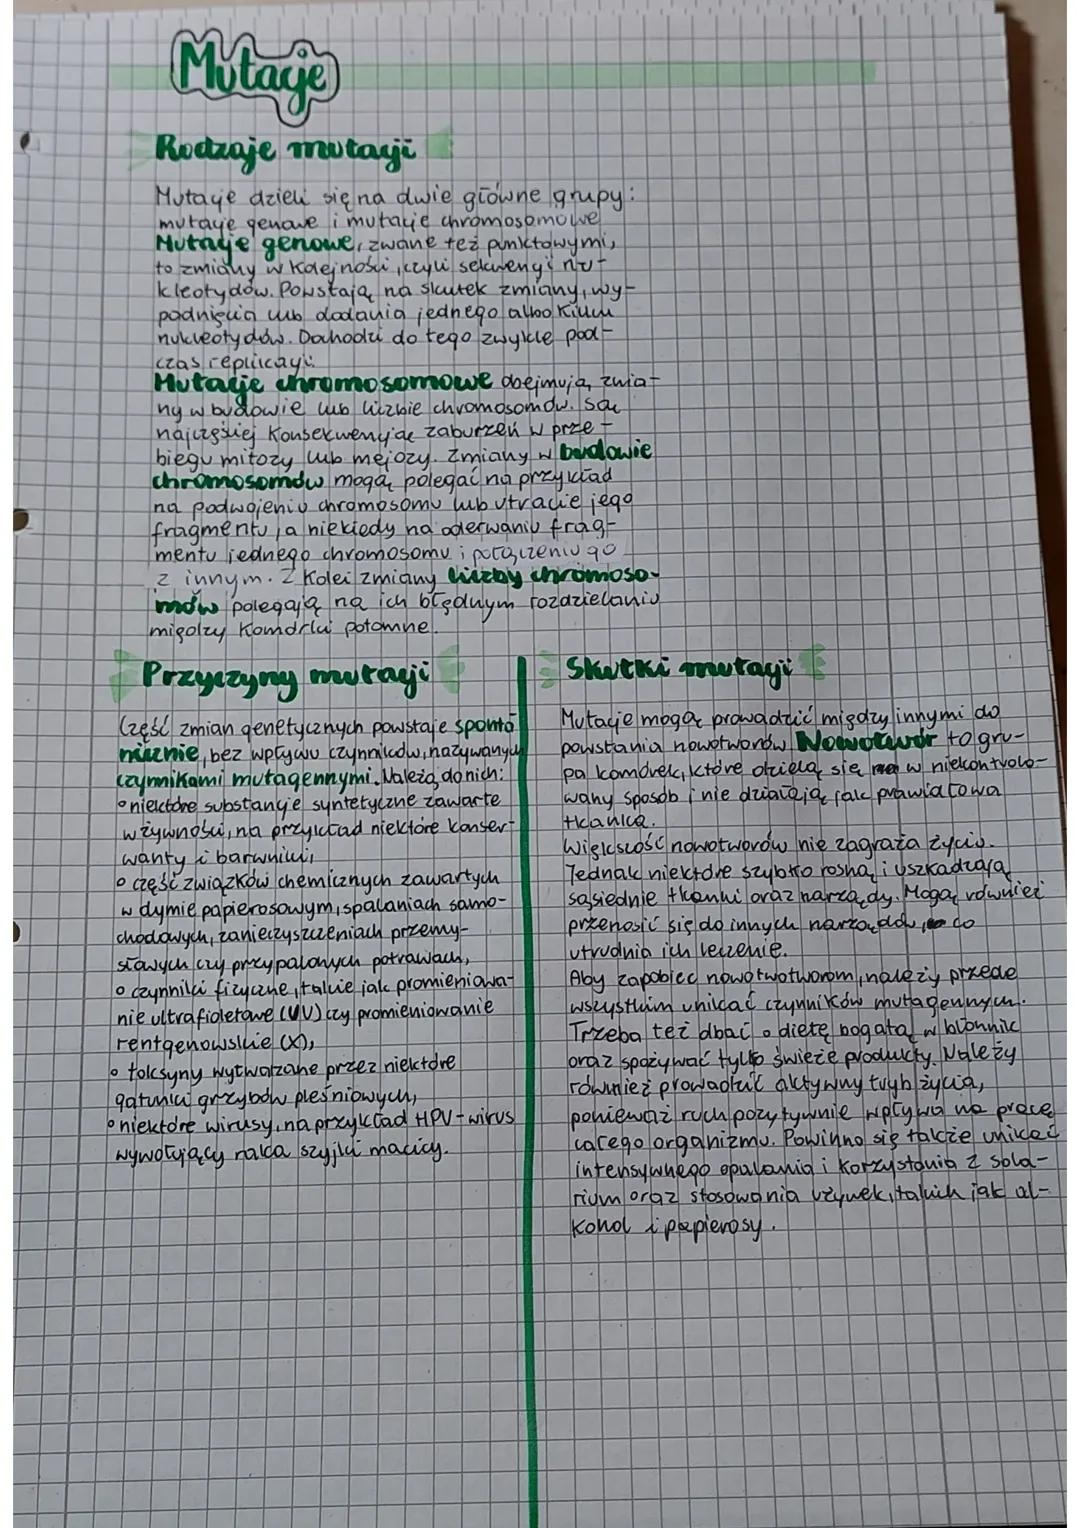 Mutacje
Rodzaje mutacji
Mutacje dzieli się na dwie główne grupy:
mutacje genowe i mutacje chromosomowe
Mutacje genowe, zwane też punktowymi,
to zmiany w kolejności, czyli sekwencji nu-
kleotydów. Powstają na skutek zmiany, wy-
padnięcia lub dodania jednego albo kilku
nukleotydów. Dochodzi do tego zwykle pod-
czas replikacji.
Mutacje chromosomowe obejmują zmia-
ny w budowie lub liczbie chromosomów. Są
najczęściej konsekwencją zaburzeń w prze-
biegu mitozy lub mejozy. Zmiany w budowie
chromosomów mogą polegać na przykład
na podwojeniu chromosomu lub utracie jego
fragmentu, a niekiedy na oderwaniu frag-
mentu jednego chromosomu i połączeniu go
z innym. Z kolei zmiany liczby chromoso-
mów polegają na ich błędnym rozdzielaniu
między komórki potomne.
Przyczyny mutacji
Część zmian genetycznych powstaje sponta
nicznie, bez wpływu czynników, nazywanych
czynnikami mutagennymi. Należą do nich:
• niektóre substancje syntetyczne zawarte
w żywności, na przykład niektóre konser-
wanty i barwniki,
• część związków chemicznych zawartych
w dymie papierosowym, spalaniach samo-
chodowych, zanieczyszczeniach przemy-
słowych czy przypalonych potrawach,
• czynniki fizyczne, takie jak promieniowa-
nie ultrafioletowe (UV) czy promieniowanie
rentgenowskie (X),
• toksyny wytwarzane przez niektóre
gatunki grzybów pleśniowych,
• niektóre wirusy, na przykład HPV-wirus
wywołujący raka szyjki macicy.
Skutki mutacji
Mutacje mogą prowadzić między innymi do
powstania nowotworów. Nowotwór to gru-
pa komórek, które dzielą się w niekontrolo-
wany sposób i nie działają jak prawidłowa
tkanka.
Większość nowotworów nie zagraża życiu.
Jednak niektóre szybko rosną i uszkadzają
sąsiednie tkanki oraz narządy. Mogą również
przenosić się do innych narządów, co
utrudnia ich leczenie.
Aby zapobiec nowotwotworom, należy przede
wszystkim unikać czynników mutagennych.
Trzeba też dbać o dietę bogatą w błonnik
oraz spożywać tylko świeże produkty. Należy
również prowadzić aktywny tryb życia,
ponieważ ruch pozytywnie wpływa na pracę
całego organizmu. Powinno się także unikać
intensywnego opalania i korzystania z sola-
rium oraz stosowania używek, takich jak al-
kohol i papierosy.